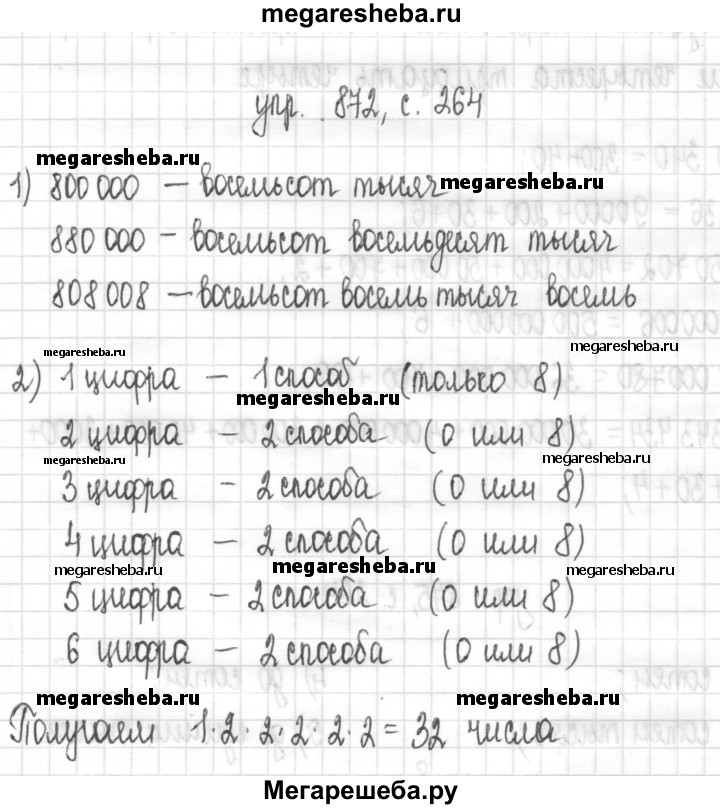 megaresheba.ru
упр. 872, с. 264
megaresheba.ru
1) 800 000 — восемьсот тысяч megaresheba.ru
880 000 — восемьсот восемьдесят тысяч
808 008 — восемьсот восемь тысяч восемь
megaresheba.ru megaresheba.ru
2) 1 цифра — 1 способ (только 8)
megaresheba.ru
2 цифра — 2 способа (0 или 8)
megaresheba.ru megaresheba.ru
3 цифра — 2 способа (0 или 8)
4 цифра — 2 способа (0 или 8)
megaresheba.ru megaresheba.ru megaresheba.ru
5 цифра — 2 способа (0 или 8)
6 цифра — 2 способа (0 или 8)
megaresheba.ru megaresheba.ru
Получаем 1·2·2·2·2·2 = 32 числа
Мегарешеба.ру